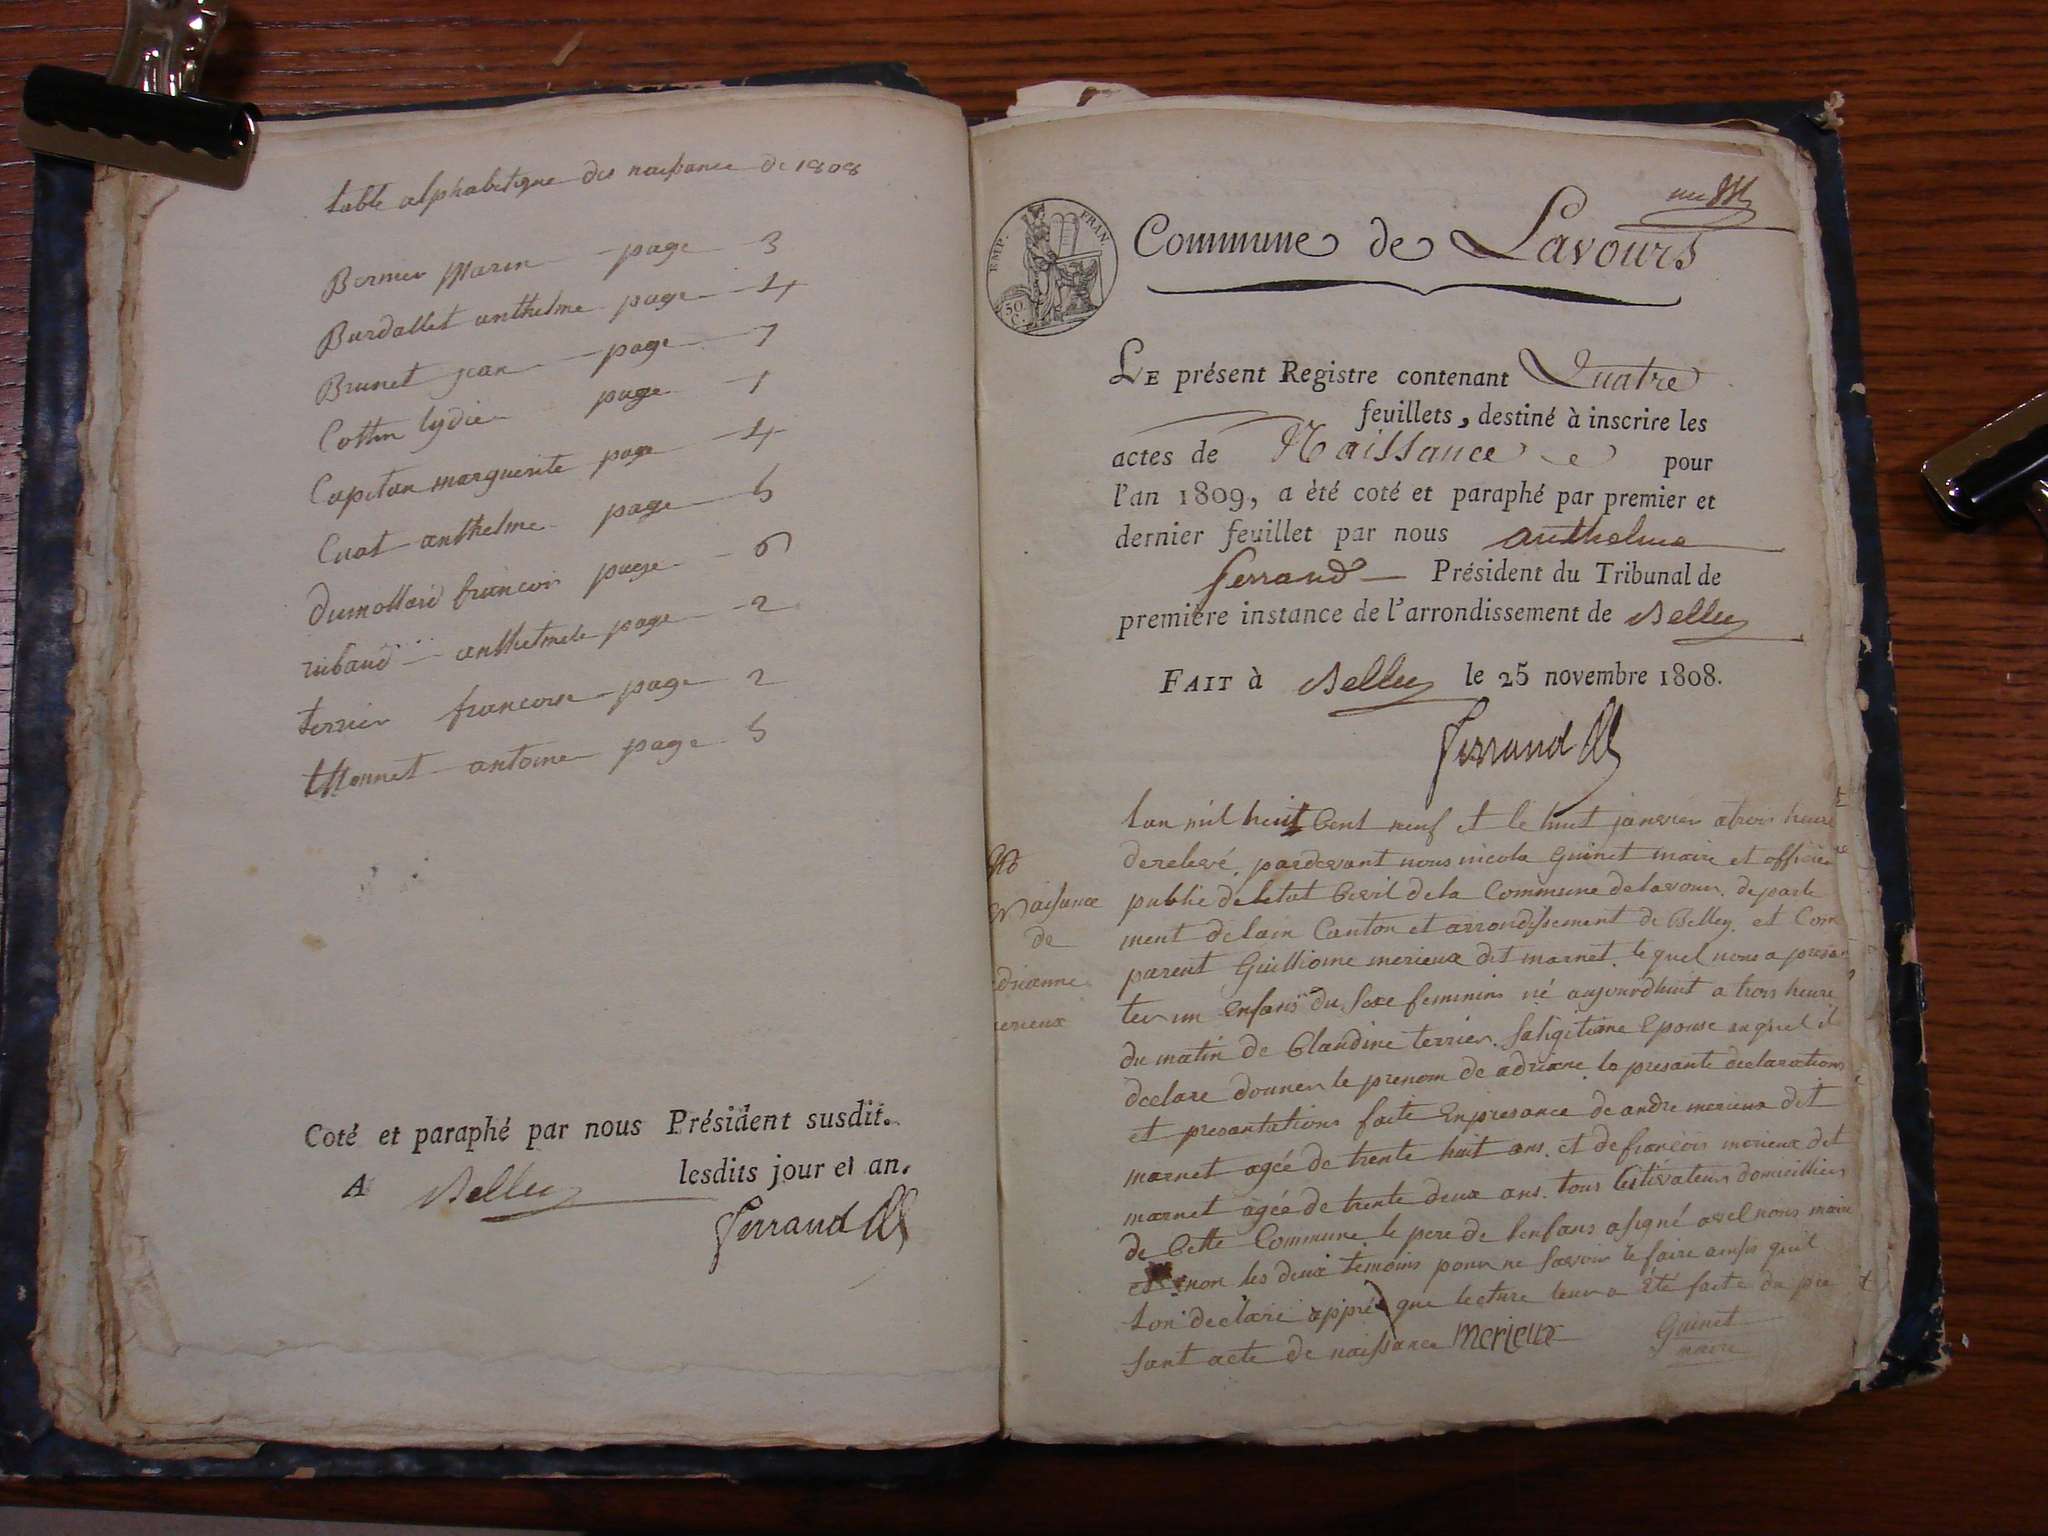 table alphabetique des naissance de 1808
Bernier Marin page 3
Burdallet anthelme page 4
Brunet jean page 7
Cottin lydie page 1
Capitan marguerite page 4
Cuat anthelme page 5
Dumollard francois page 6
ribaud anthelmele page 2
terrier francoise page 2
Monnet antoine page 5
Coté et paraphé par nous Président susdit.
A Belley lesdits jour et an.
Ferrand
EMP. FRAN.
50 C.
Commune de Lavours
LE présent Registre contenant Quatre
feuillets, destiné à inscrire les
actes de Naissance pour
l'an 1809, a été coté et paraphé par premier et
dernier feuillet par nous anthelme
ferrand Président du Tribunal de
première instance de l'arrondissement de Belley
FAIT à Belley le 25 novembre 1808.
Ferrand
N°
Naisance
de
drianne
erieux
Lan mil heuit Cent neuf et le huit janvier a trois heure
de relevé. pardevant nous nicola Guinet maire et officier
public de letat Civil de la Commune de lavour. departe
ment de lain Canton et arrondissement de Belley. et Com
parent Guilliome merieux dit marnet. le quel nous a presan
ter un Enfans du Sexe feminins né aujourdhuit a trois heure
du matin de Claudine terrier. Saligitime Epouse auquel il
declare donner le prenom de adriane la presante declarations
et presantations faite Enpresance de andre merieux dit
marnet agée de trente huit ans. et de francois merieux dit
marnet agée de trente deux ans. tous Cultivateurs domicillier
de Cette Commune le pere de lenfans asigné avel nous maire
et non les deux temoins pour ne Savoir le faire ainsis quil
lon declaré apprés que lecture leur a Eté faite du pre
sant acte de naissance Merieux Guinet
maire